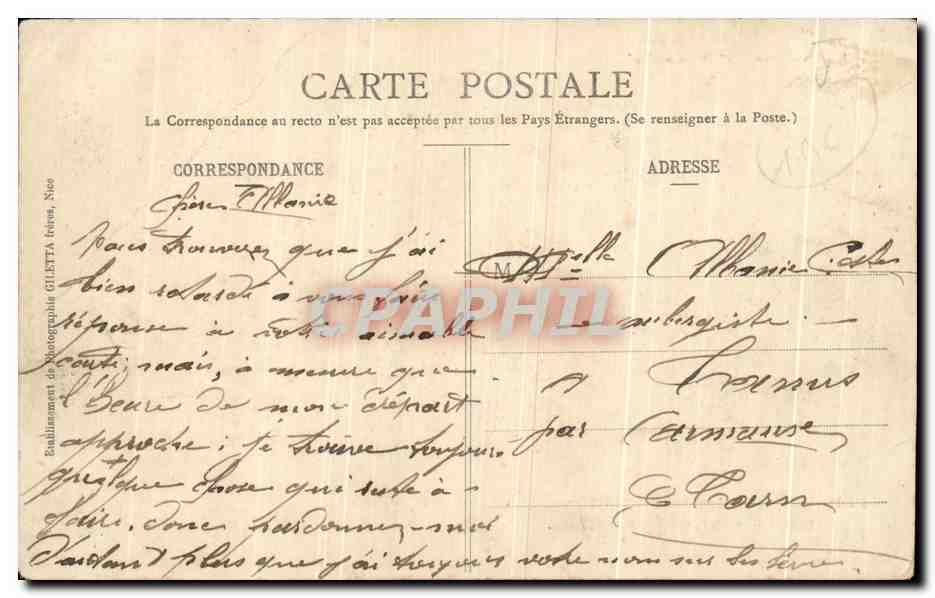 CARTE POSTALE
La Correspondance au recto n'est pas acceptée par tous les Pays Étrangers. (Se renseigner à la Poste.)
CORRESPONDANCE
Chère Albanie
Vous trouverez que j'ai
bien retardé à vous faire
réponse à votre aimable
carte, mais, à mesure que
l'heure de mon départ
approche; je trouve toujours
quelque chose qui reste à
faire. donc pardonnez-moi
d'autant plus que j'ai toujours votre nom sur les lèvres.
ADRESSE
Mlle Albanie Costes
aubergiste
à Tanus
par Carmaux
Tarn
Etablissement de Photographie GILETTA frères, Nice
CPAPHIL